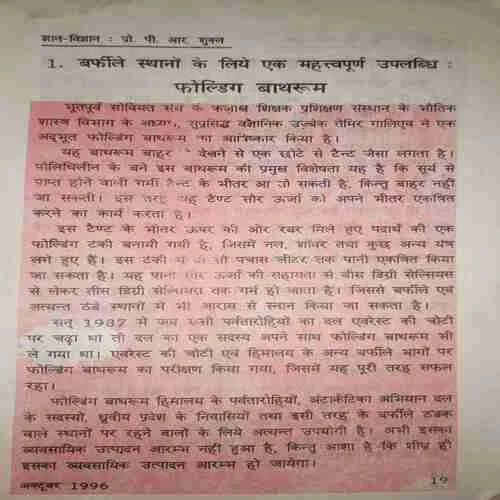 ज्ञान-विज्ञान : प्रो. पी. आर. शुक्ल
1. बर्फीले स्थानों के लिये एक महत्त्वपूर्ण उपलब्धि :
फोल्डिंग बाथरूम
भूतपूर्व सोवियत संघ के कजाख शिक्षक प्रशिक्षण संस्थान के भौतिक
शास्त्र विभाग के अध्यक्ष, सुप्रसिद्ध वैज्ञानिक उज़्बेक तेमिर गालिएव ने एक
अद्भुत फोल्डिंग बाथरूम का आविष्कार किया है।
यह बाथरूम बाहर देखने से एक छोटे से टैन्ट जैसा लगता है।
पोलिथिलीन के बने इस बाथरूम की प्रमुख विशेषता यह है कि सूर्य से
प्राप्त होने वाली गर्मी टैन्ट के भीतर आ तो सकती है, किन्तु बाहर नहीं
जा सकती। इस तरह यह टैण्ट सौर ऊर्जा को अपने भीतर एकत्रित
करने का कार्य करता है।
इस टैण्ट के भीतर ऊपर की ओर रबर मिले हुए पदार्थ की एक
फोल्डिंग टंकी बनायी गयी है, जिसमें नल, शॉवर तथा कुछ अन्य यंत्र
लगे हुए हैं। इस टंकी में पचास लीटर तक पानी एकत्रित किया
जा सकता है। यह पानी सौर ऊर्जा की सहायता से बीस डिग्री सेल्सियस
से लेकर तीस डिग्री सेल्सियस तक गर्म हो जाता है। जिससे बर्फीले एवं
अत्यन्त ठंडे स्थानों में भी आराम से स्नान किया जा सकता है।
सन् 1987 में जब रूसी पर्वतारोहियों का दल एवरेस्ट की चोटी
पर चढ़ा था तो दल का एक सदस्य अपने साथ फोल्डिंग बाथरूम भी
ले गया था। एवरेस्ट की चोटी एवं हिमालय के अन्य बर्फीले भागों पर
फोल्डिंग बाथरूम का परीक्षण किया गया, जिसमें यह पूरी तरह सफल
रहा।
फोल्डिंग बाथरूम हिमालय के पर्वतारोहियों, अंटार्कटिका अभियान दल
के सदस्यों, ध्रुवीय प्रदेश के निवासियों तथा इसी तरह के बर्फीले ठंडक
वाले स्थानों पर रहने वालों के लिये अत्यन्त उपयोगी है। अभी इसका
व्यवसायिक उत्पादन आरम्भ नहीं हुआ है, किन्तु आशा है कि शीघ्र ही
इसका व्यवसायिक उत्पादन आरम्भ हो जायेगा।
अक्टूबर 1996 19